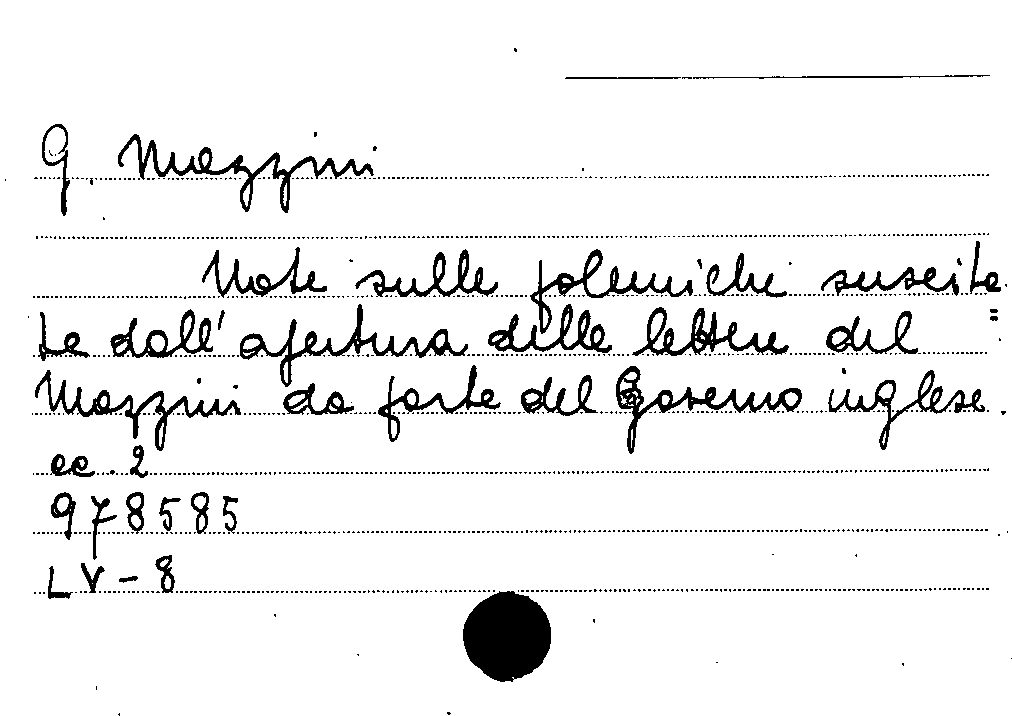 G. Mazzini
Note sulle polemiche suscita=
te dall'apertura delle lettere del
Mazzini da parte del Governo inglese.
cc. 2
978585
LV-8